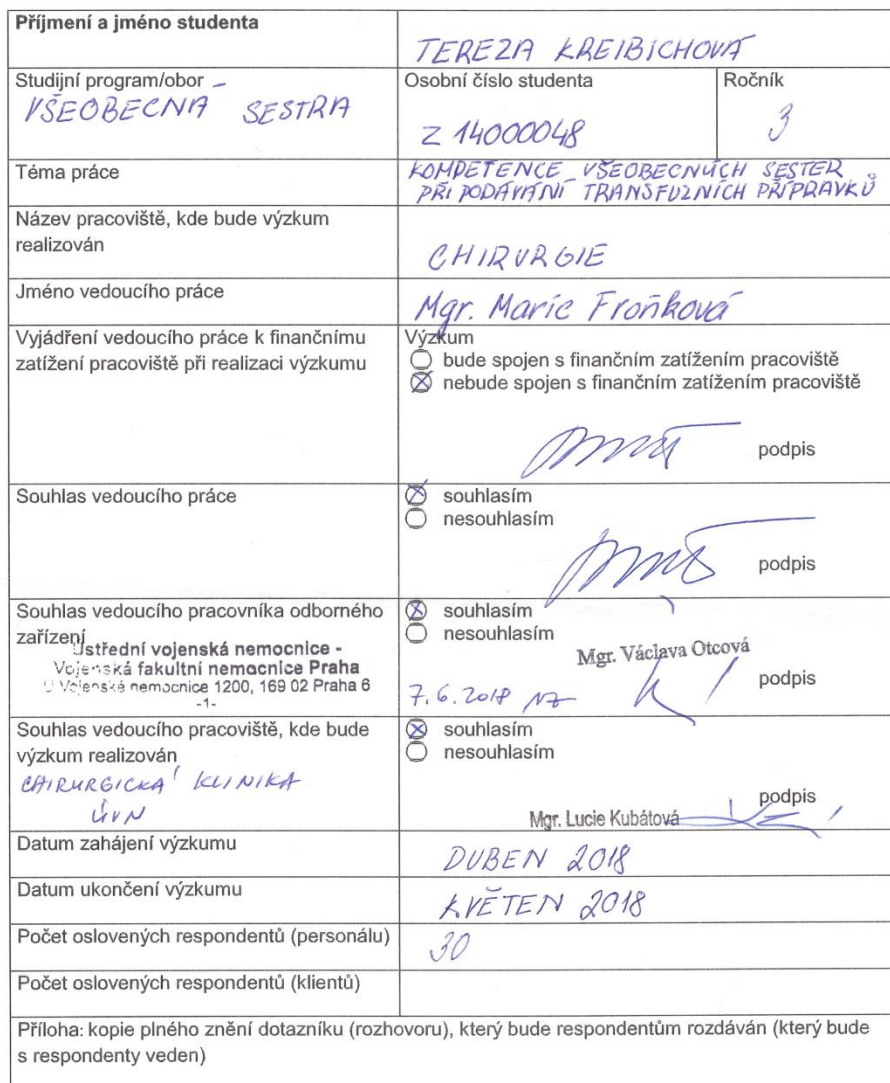 Příjmení a jméno studenta
TEREZA KREIBICHOVÁ
Studijní program/obor
VŠEOBECNÁ SESTRA
Osobní číslo studenta
Z 14000048
Ročník
3
Téma práce
KOMPETENCE VŠEOBECNÝCH SESTER
PŘI PODÁVÁNÍ TRANSFUZNÍCH PŘÍPRAVKŮ
Název pracoviště, kde bude výzkum
realizován
CHIRURGIE
Jméno vedoucího práce
Mgr. Marie Froňková
Vyjádření vedoucího práce k finančnímu
zatížení pracoviště při realizaci výzkumu
Výzkum
bude spojen s finančním zatížením pracoviště
nebude spojen s finančním zatížením pracoviště
podpis
Souhlas vedoucího práce
souhlasím
nesouhlasím
podpis
Souhlas vedoucího pracovníka odborného
zařízení
Ústřední vojenská nemocnice -
Vojenská fakultní nemocnice Praha
U Vojenské nemocnice 1200, 169 02 Praha 6
-1-
souhlasím
nesouhlasím
Mgr. Václava Otcová
7.6.2018
podpis
Souhlas vedoucího pracoviště, kde bude
výzkum realizován
CHIRURGICKÁ KLINIKA
ÚVN
souhlasím
nesouhlasím
podpis
Mgr. Lucie Kubátová
Datum zahájení výzkumu
DUBEN 2018
Datum ukončení výzkumu
KVĚTEN 2018
Počet oslovených respondentů (personálu)
30
Počet oslovených respondentů (klientů)
Příloha: kopie plného znění dotazníku (rozhovoru), který bude respondentům rozdáván (který bude
s respondenty veden)